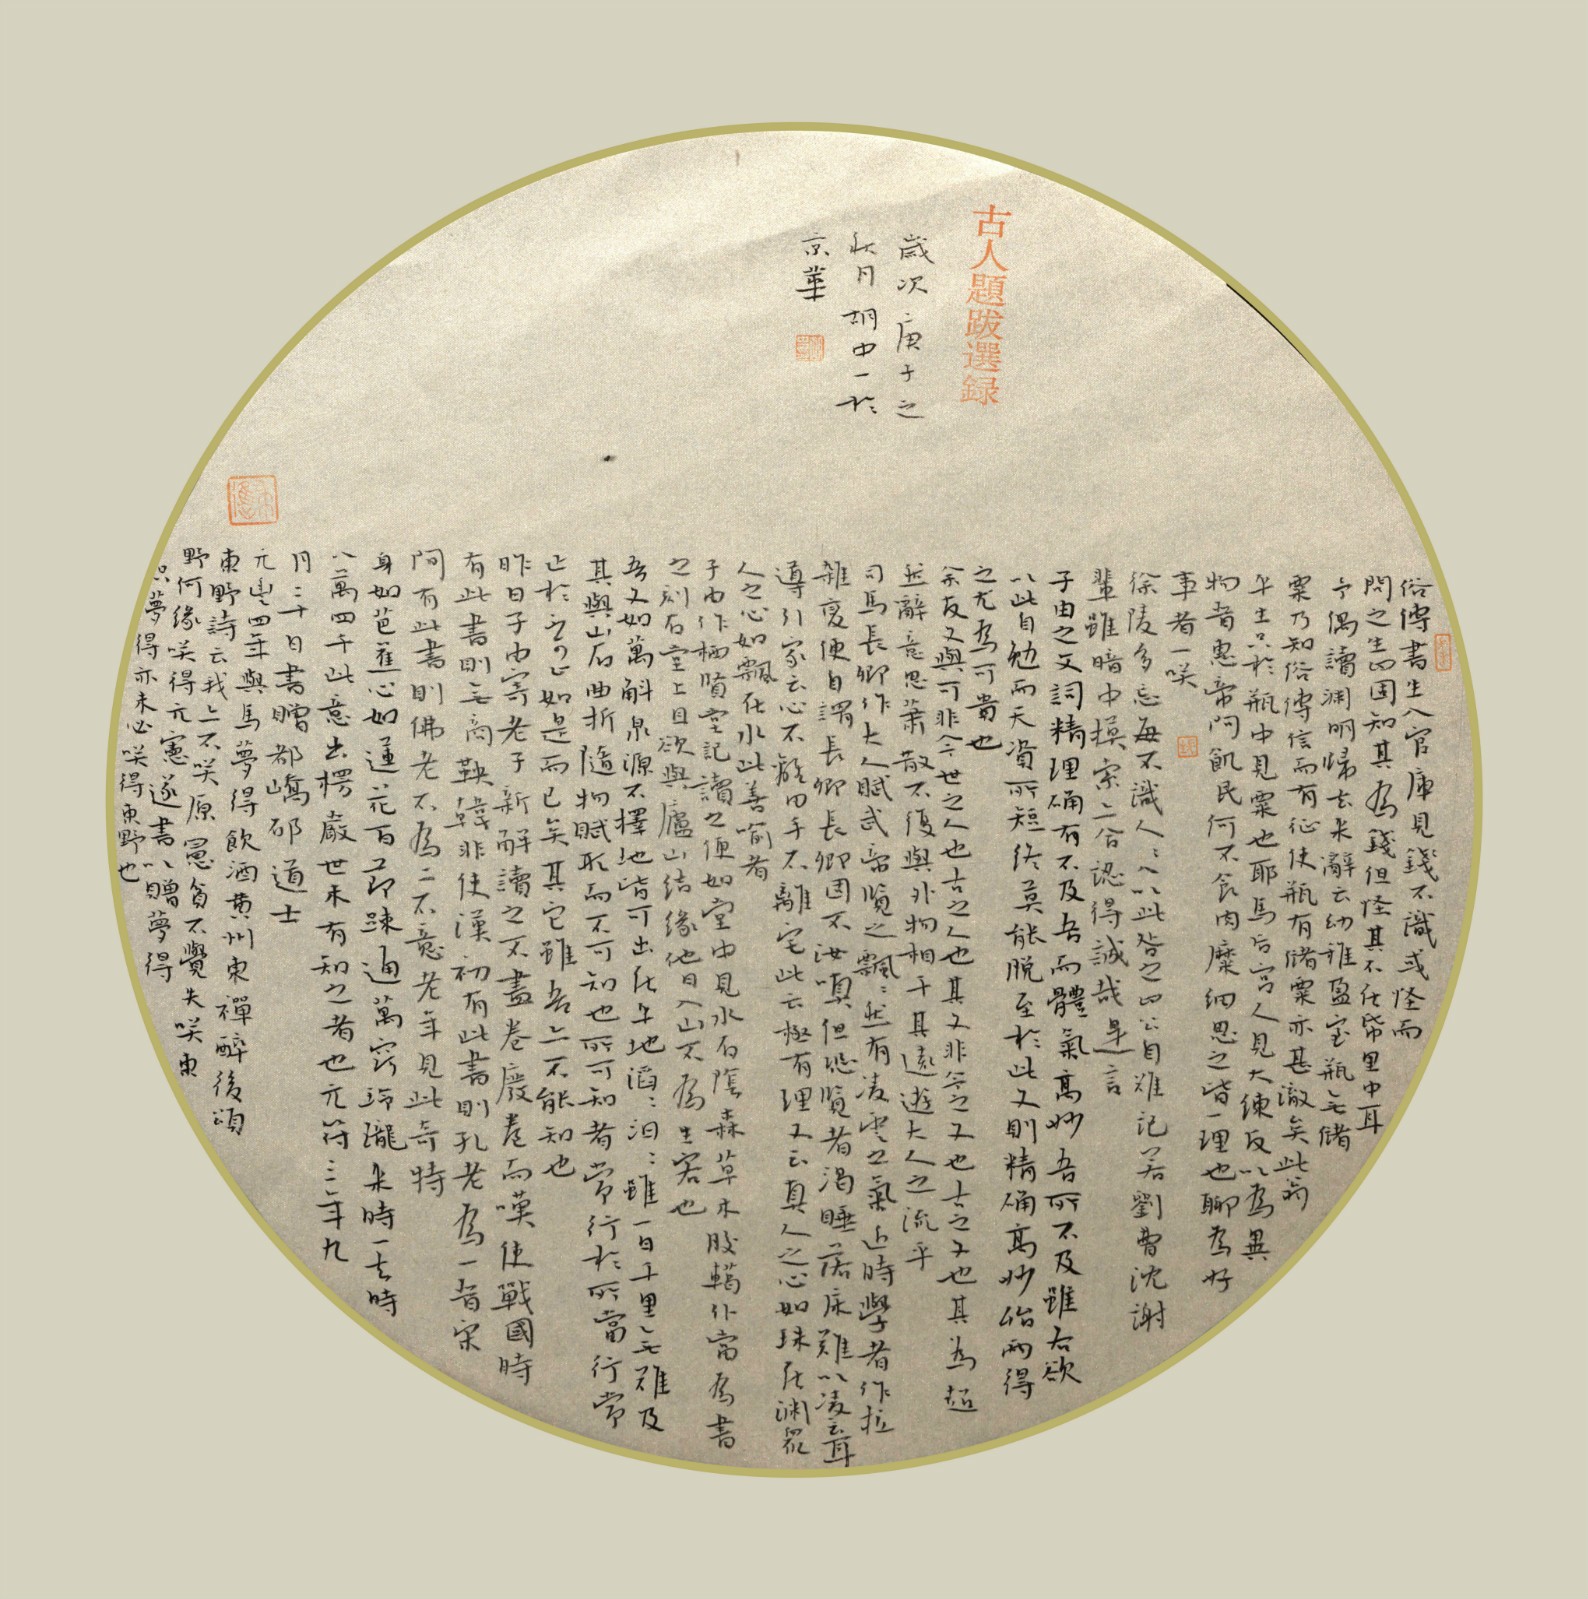 古人題跋選録
歲次庚子之
秋月胡中一於
京華
俗傳書生入官庫見錢不識或怪而
問之生曰固知其為錢但怪其不在帋里中耳
予偶讀淵明歸去来辭云幼稚盈室瓶無儲
粟乃知俗傳信而有征使瓶有儲粟亦甚澈矣此翁
平生只於瓶中見粟也耶馬后宫人見大練反以為異
物者惠帝問飢民何不食肉糜細思之皆一理也聊為好
事者一咲
徐陵多忘每不識人人以此咎之曰公自難記若劉曹沈謝
輩雖暗中摸索亦合認得誠哉是言
子由之文詞精理确有不及吾而體氣高妙吾所不及雖各欲
以此自勉而天資所短終莫能脱至於此文則精确高妙殆兩得
之尤為可貴也
余友文與可非今世之人也古之人也其文非今之文也古之文也其為超
然辭意思蕭散不復與外物相干其遠遊大人之流乎
司馬長卿作大人賦武帝覽之飄飄然有凌雲之氣近時學者作拉
雜變便自謂長卿長卿固不汝嗔但恐覽者渴睡落床難以凌雲耳
導引家云心不離田手不離宅此云極有理又云真人之心如珠在淵眾
人之心如飄在水此善喻者
子由作栖賢堂記讀之便如堂中見水石陰森草木膠轕仆當為書
之刻石堂上且欲與廬山结緣他日入山不為生客也
吾文如萬斛泉源不擇地皆可出在平地滔滔汩汩雖一日千里無難及
其與山石曲折隨物賦形而不可知也所可知者常行於所當行常
止於不可不止如是而已矣其它雖吾亦不能知也
昨日子由寄老子新解讀之不盡卷廢卷而嘆使戰國時
有此書則無商鞅韓非使漢初有此書則孔老為一晉宋
間有此書則佛老不為二不意老年見此奇特
身如芭蕉心如蓮花百節疎通萬竅玲瓏来時一去時
八萬四千此意出楞嚴世未有知之者也元符三年九
月二十日書贈都嶠邵道士
元豐四年與馬夢得飲酒黄州東禪醉後頌
東野詩云我亦不咲原憲貧不覺失咲東
野何緣咲得元憲遂書以贈夢得
只夢得亦未必咲得東野也